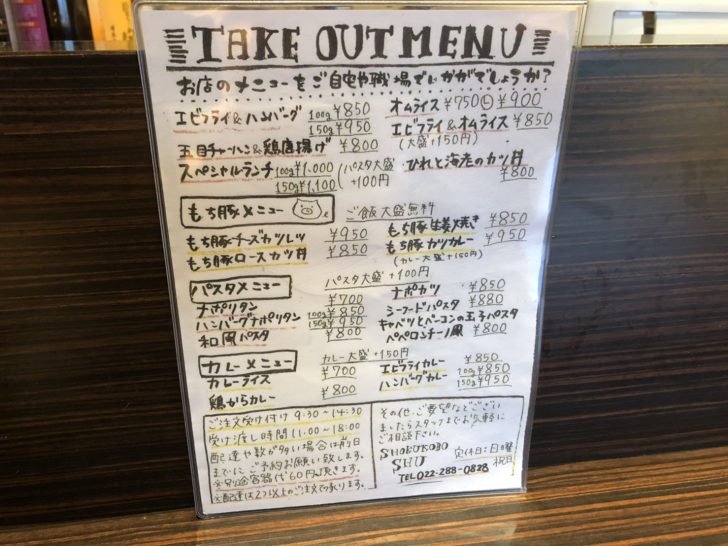 TAKE OUT MENU
お店のメニューをご自宅や職場でいかがでしょうか?
エビフライ&ハンバーグ 100g ¥850
150g ¥950
五目チャーハン&鶏唐揚げ ¥800
スペシャルランチ 100g ¥1,000
150g ¥1,100
(パスタ大盛+100円
オムライス ¥750 ¥900
エビフライ&オムライス ¥850
(大盛+150円)
ひれと海老のカツ丼
¥800
もち豚メニュー
ご飯大盛無料
もち豚チーズカツレツ ¥950
もち豚ロースカツ丼 ¥850
もち豚生姜焼き ¥850
もち豚カツカレー ¥950
(カレー大盛+150円)
パスタメニュー
パスタ大盛+100円
ナポリタン ¥700
ハンバーグナポリタン 100g ¥850
150g ¥950
和風パスタ ¥800
ナポカツ ¥850
シーフードパスタ ¥880
キャベツとベーコンの玉子パスタ
ペペロンチーノ風 ¥800
カレーメニュー
カレー大盛+150円
カレーライス ¥700
鶏からカレー ¥800
エビフライカレー ¥850
ハンバーグカレー 100g ¥850
150g ¥950
ご注文受け付け 9:30~14:30
受け渡し時間 11:00~18:00
配達や数が多い場合は前日
までにご予約お願い致します。
※別途容器代60円頂きます。
※配達は2つ以上のご注文で承ります。
その他、ご要望などござい
ましたらスタッフまでお気軽に
ご相談下さい。
SHOKUKOBO
SHU
定休日:日曜
祝日
TEL 022-288-0828